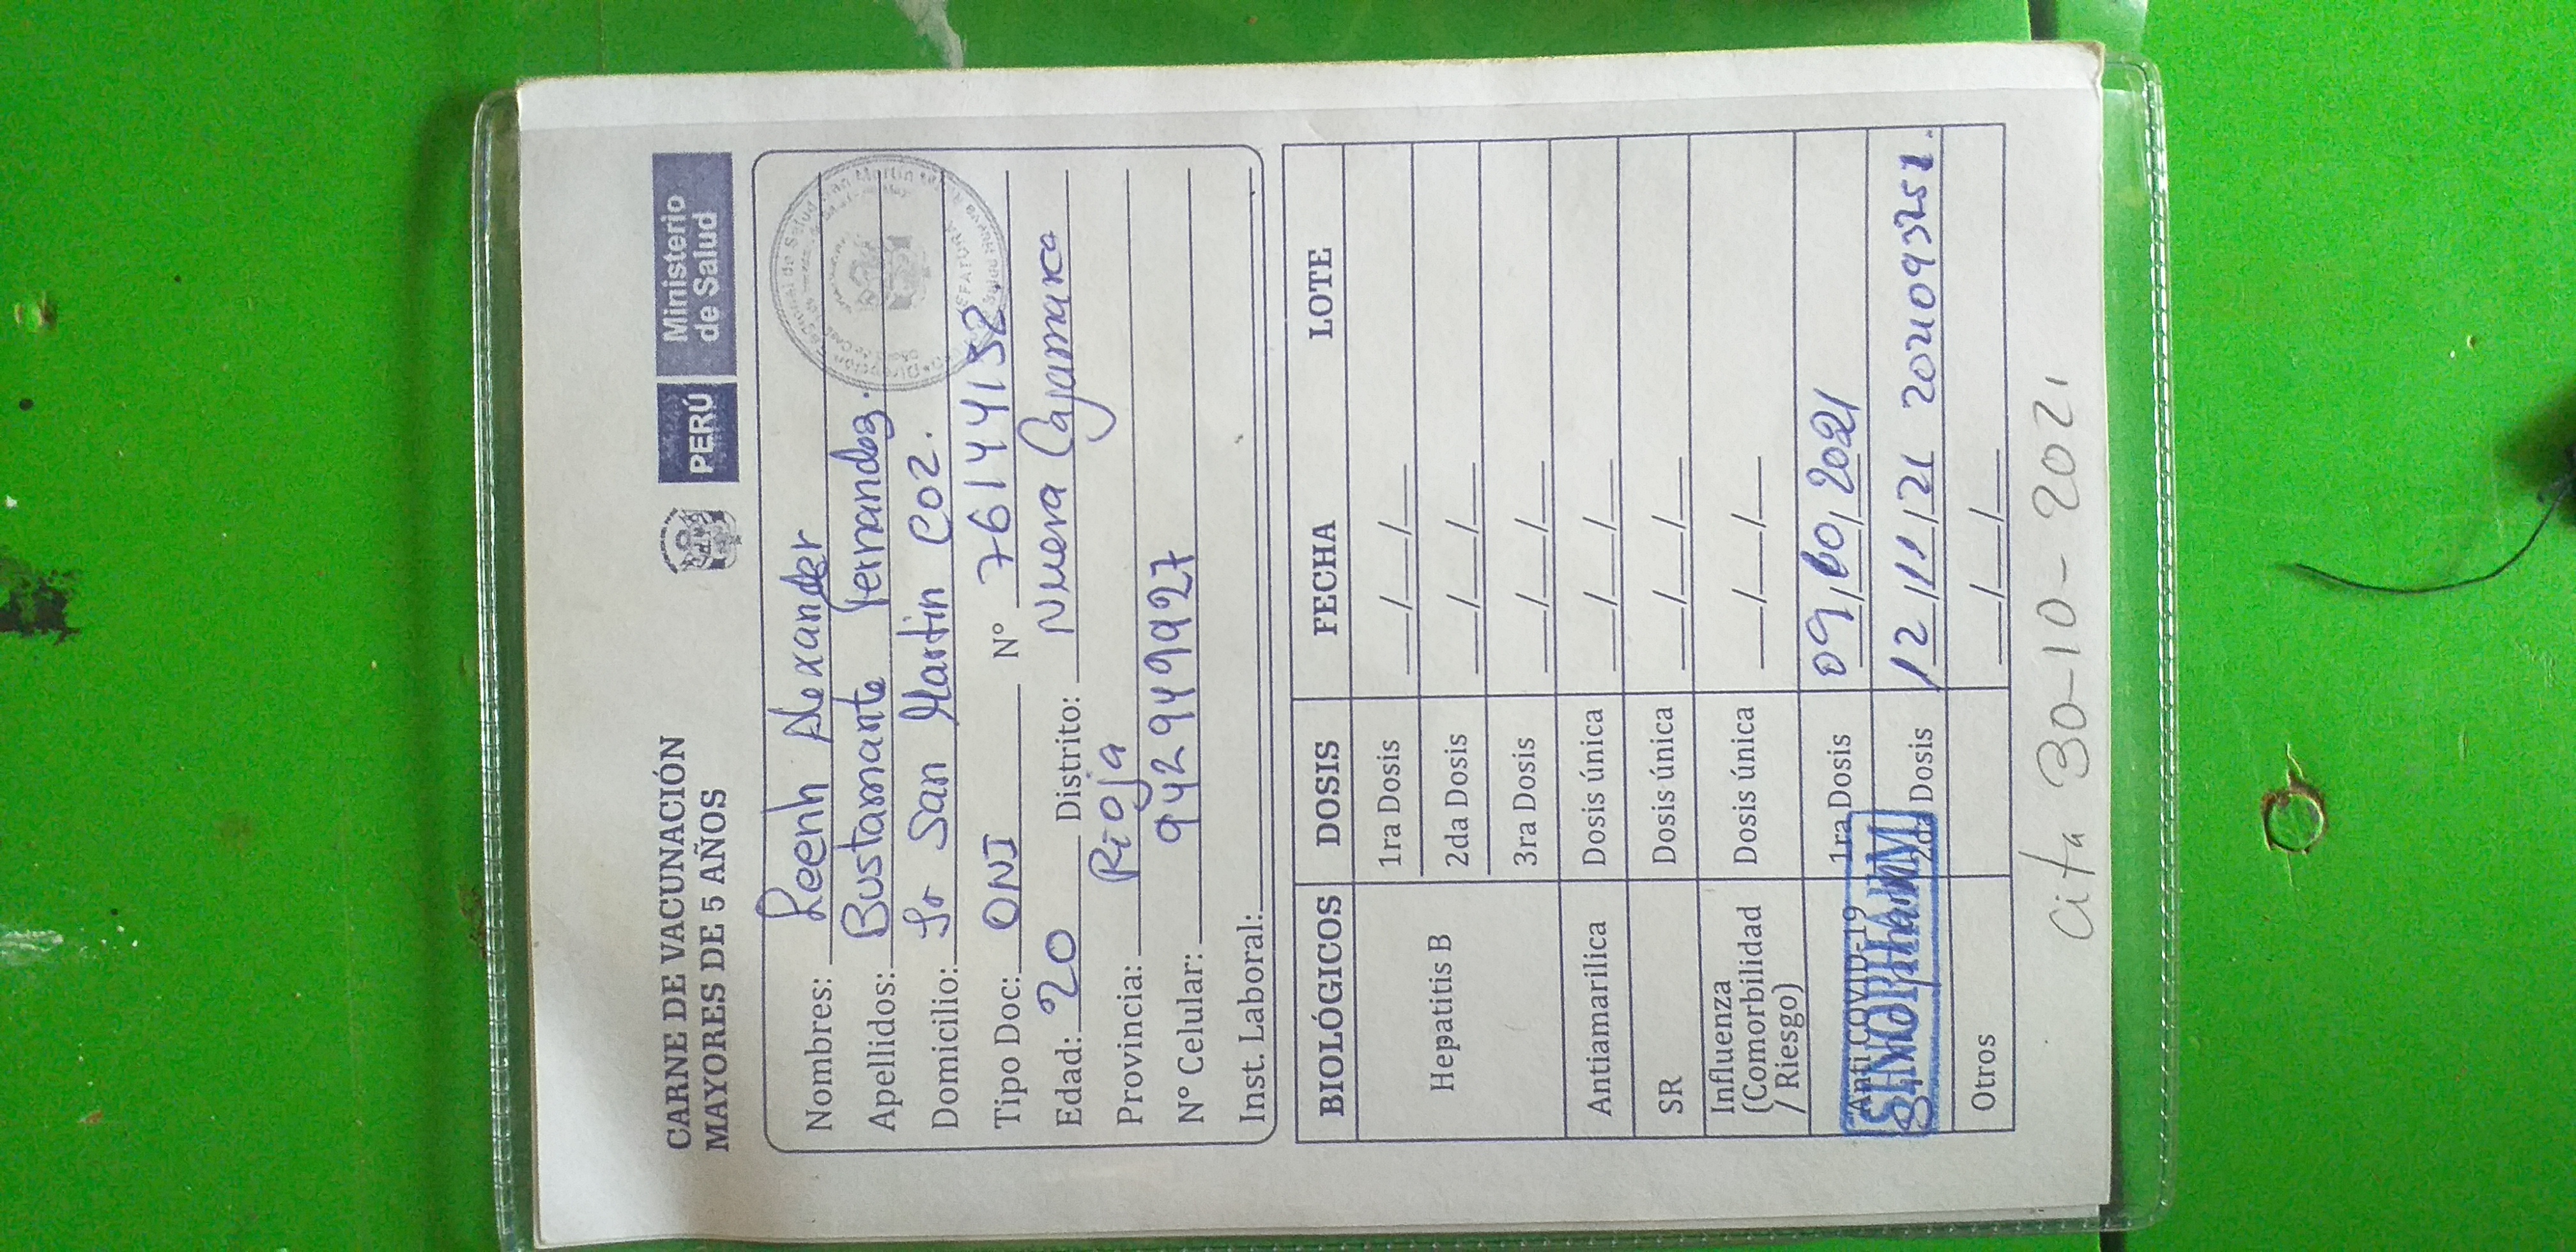 CARNE DE VACUNACIÓN
MAYORES DE 5 AÑOS
PERÚ
Ministerio
de Salud
Nombres: Leenh Alexander
Apellidos: Bustamante Fernandez.
Domicilio: Jr San Martin C02.
Tipo Doc: DNI N° 76144152.
Edad: 20 Distrito: Nueva Cajamarca
Provincia: Rioja
N° Celular: 942949927
Inst. Laboral:
BIOLÓGICOS DOSIS FECHA LOTE
Hepatitis B
1ra Dosis __/__/__
2da Dosis __/__/__
3ra Dosis __/__/__
Antiamarilica Dosis única __/__/__
SR Dosis única __/__/__
Influenza
(Comorbilidad
/ Riesgo)
Dosis única __/__/__
Anti COVID-19
SINOPHARM
Sinopharm
1ra Dosis 09/10/2021
2da Dosis 12/11/21 2021093251.
Otros __/__/__
cita 30-10-2021